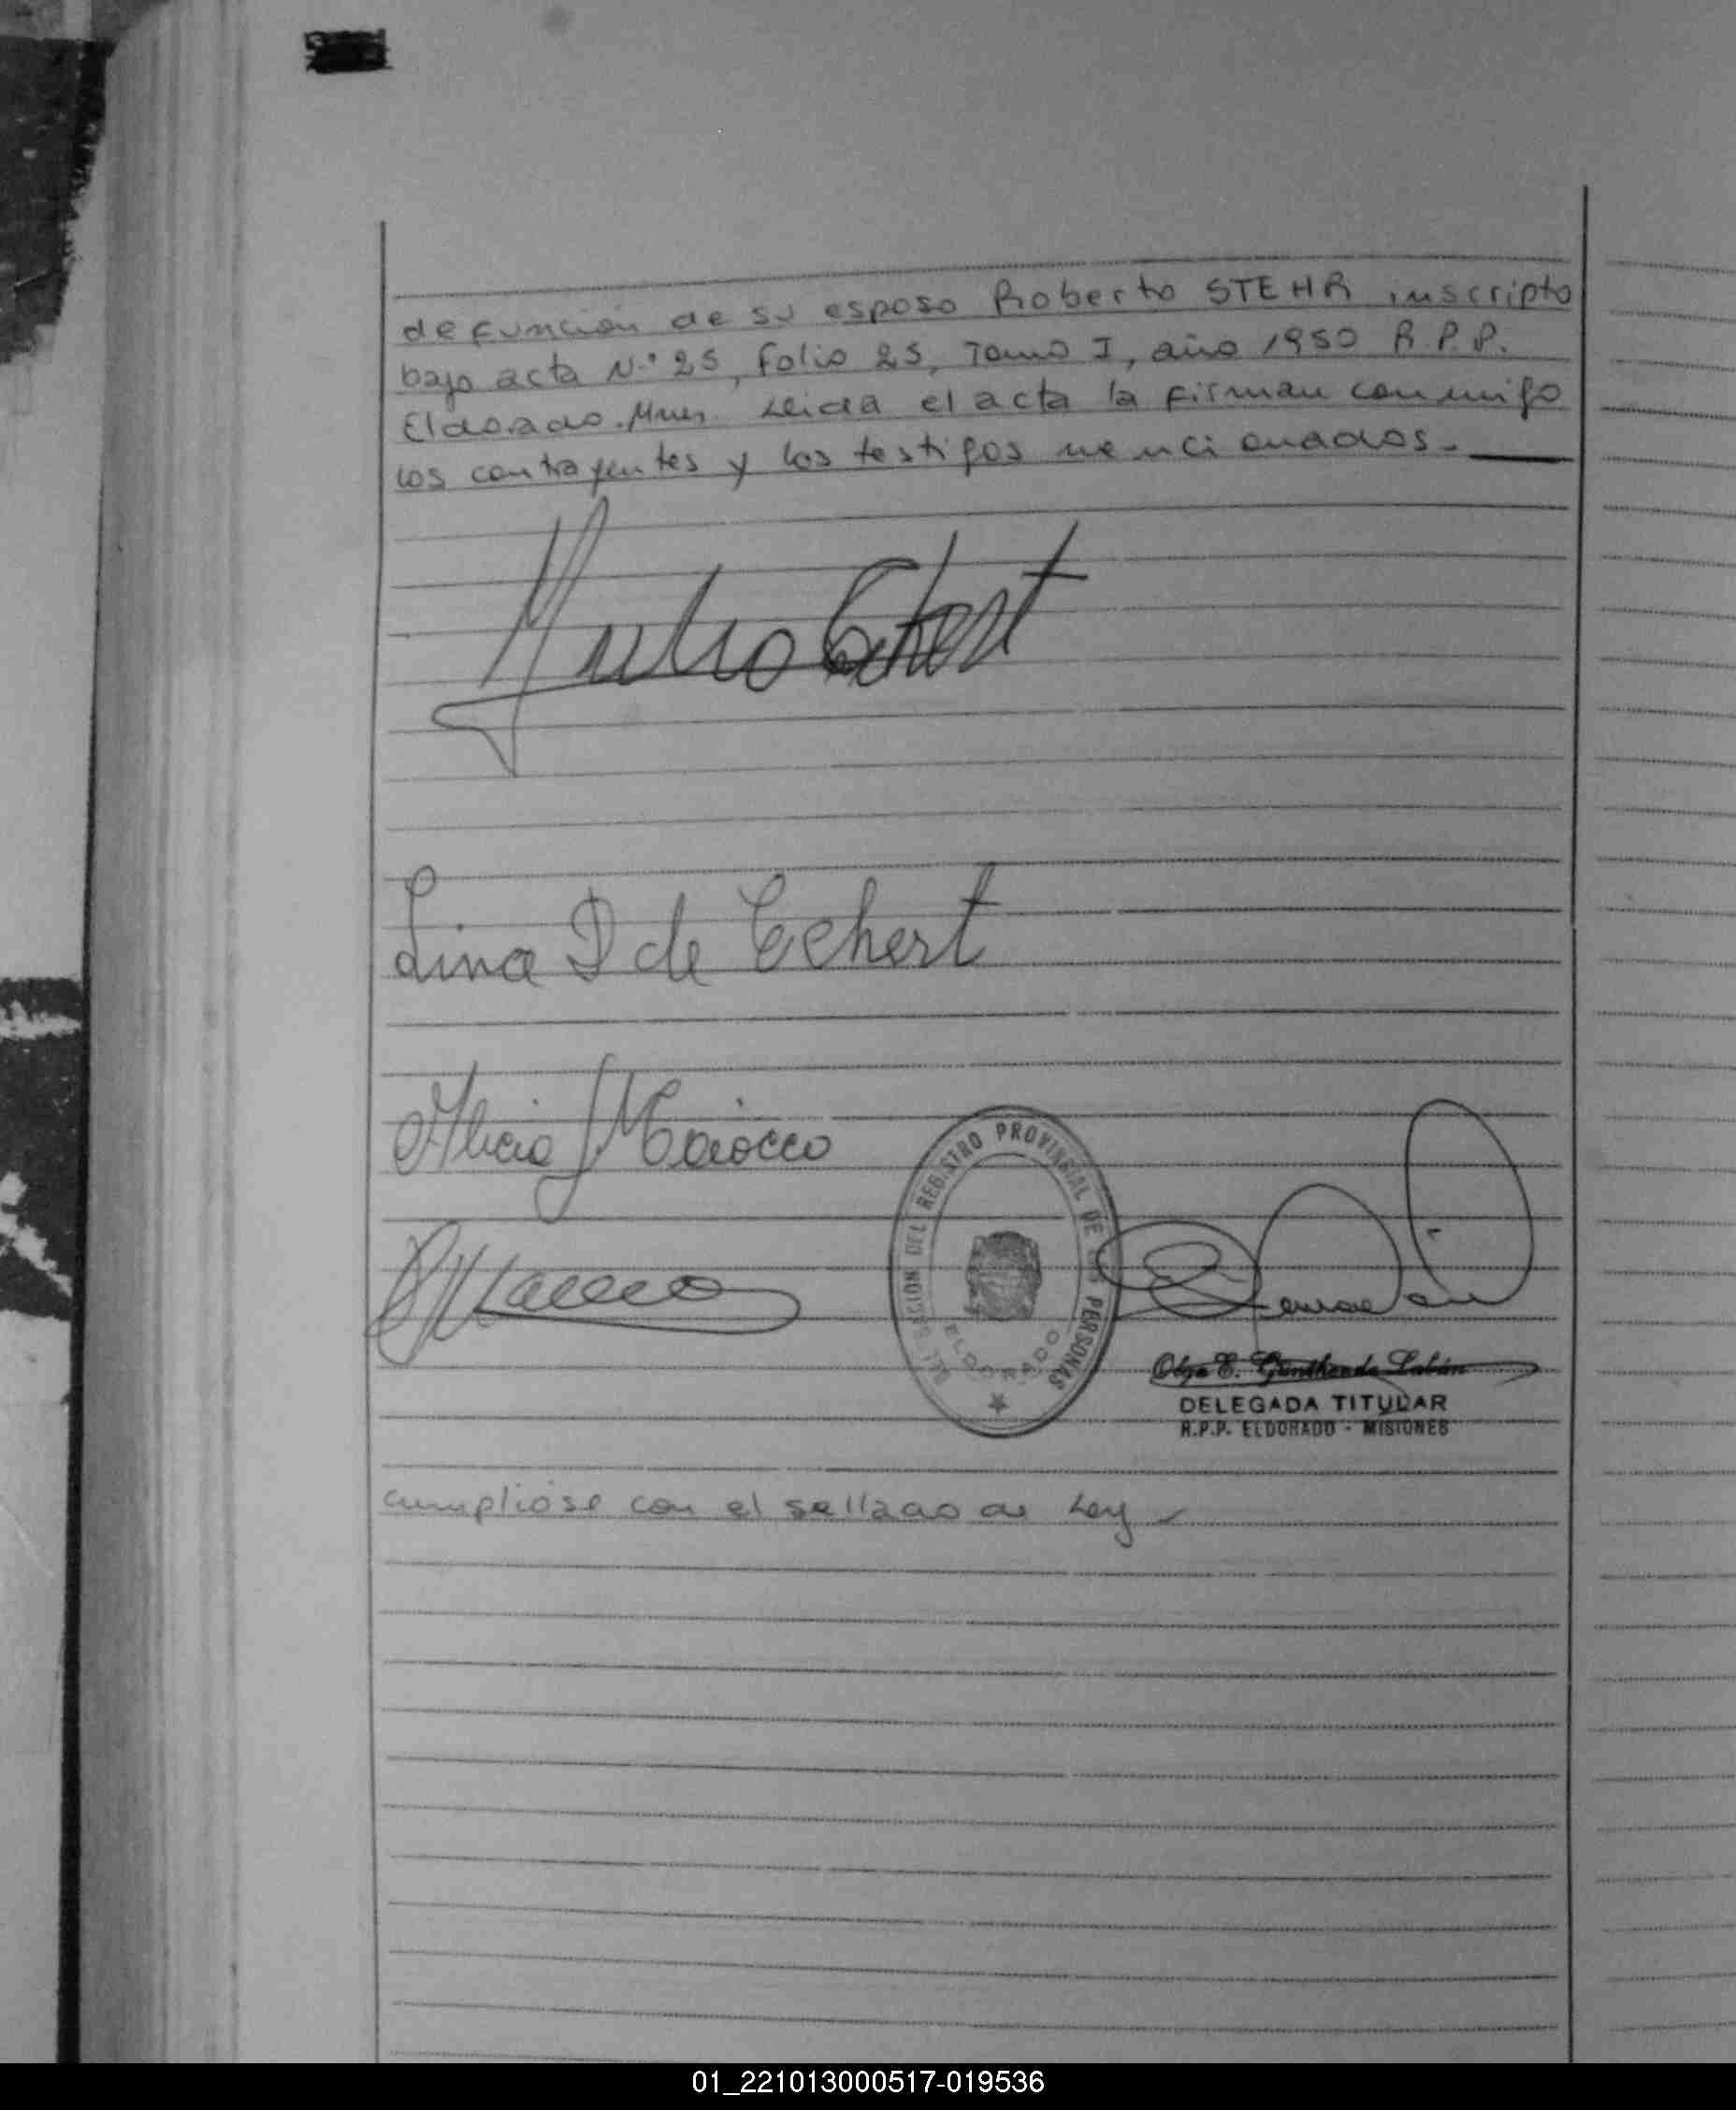 defunción de su esposo Roberto STEHR inscripto
bajo acta N.º 25, Folio 25, Tomo I, año 1950 R.P.P.
Eldorado. Mnes. Leida el acta la firman conmigo
los contrayentes y los testigos mencionados.-
Lina D de Eckert
Alicia J Maiocco
DELEGACION DEL REGISTRO PROVINCIAL DE LAS PERSONAS
ELDORADO
Olga E.
DELEGADA TITULAR
R.P.P. ELDORADO - MISIONES
cumpliose con el sellado de Ley
01_221013000517-019536